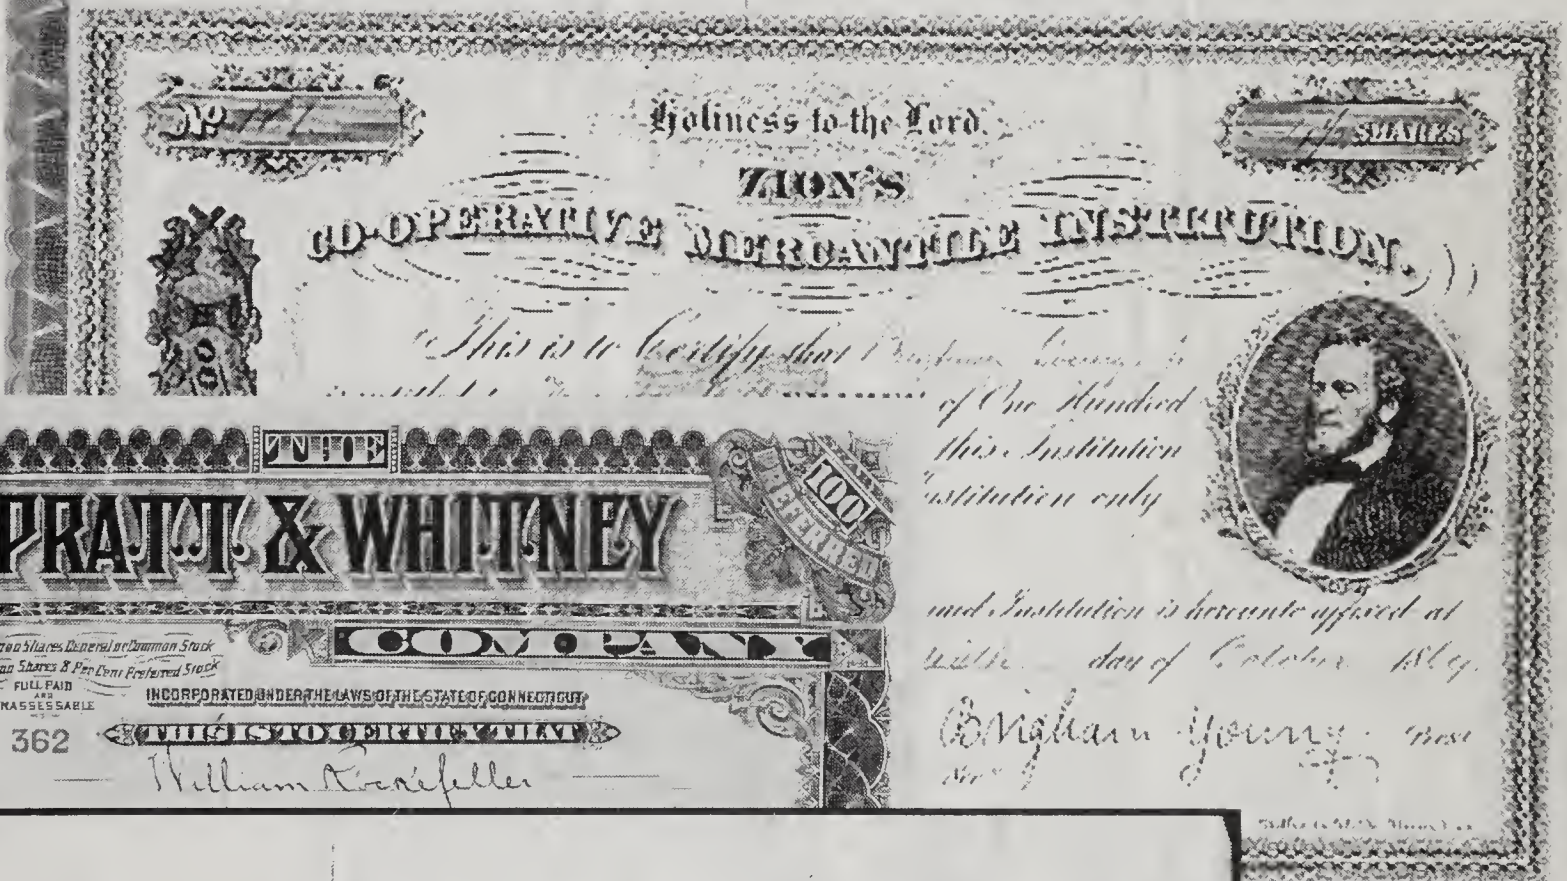 No
Holiness to the Lord.
SHARES
ZION'S
CO-OPERATIVE MERCANTILE INSTITUTION.
This is to Certify that
of One Hundred
this Institution
nstitution only
and Institution is hereunto affixed at
day of October 1869.
Brigham Young Prest
THE
100
PREFERRED
PRATT & WHITNEY
COMPANY
Shares General or Common Stock
Shares 8 Per Cent Preferred Stock
FULL PAID
AND
NASSESSABLE
INCORPORATED UNDER THE LAWS OF THE STATE OF CONNECTICUT.
362
THIS IS TO CERTIFY THAT
William Rockefeller